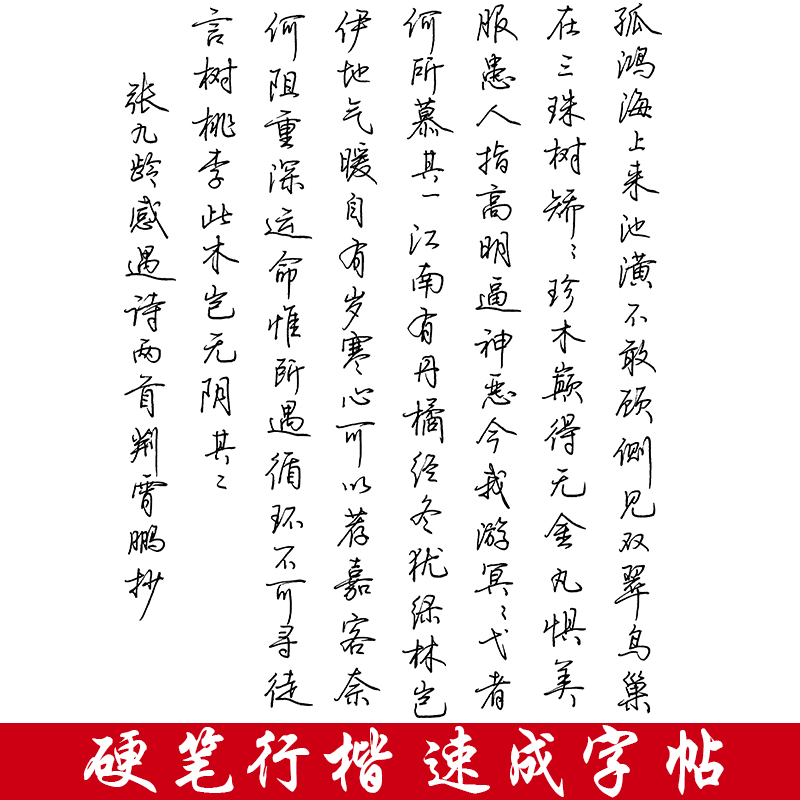 孤鸿海上来池潢不敢顾侧见双翠鸟巢
在三珠树矫〻珍木巅得无金丸惧美
服患人指高明逼神恶今我游冥〻弋者
何所慕其一江南有丹橘经冬犹绿林岂
伊地气暖自有岁寒心可以荐嘉客奈
何阻重深运命惟所遇循环不可寻徒
言树桃李此木岂无阴其〻
张九龄感遇诗两首荆霄鹏抄
硬笔行楷 速成字帖